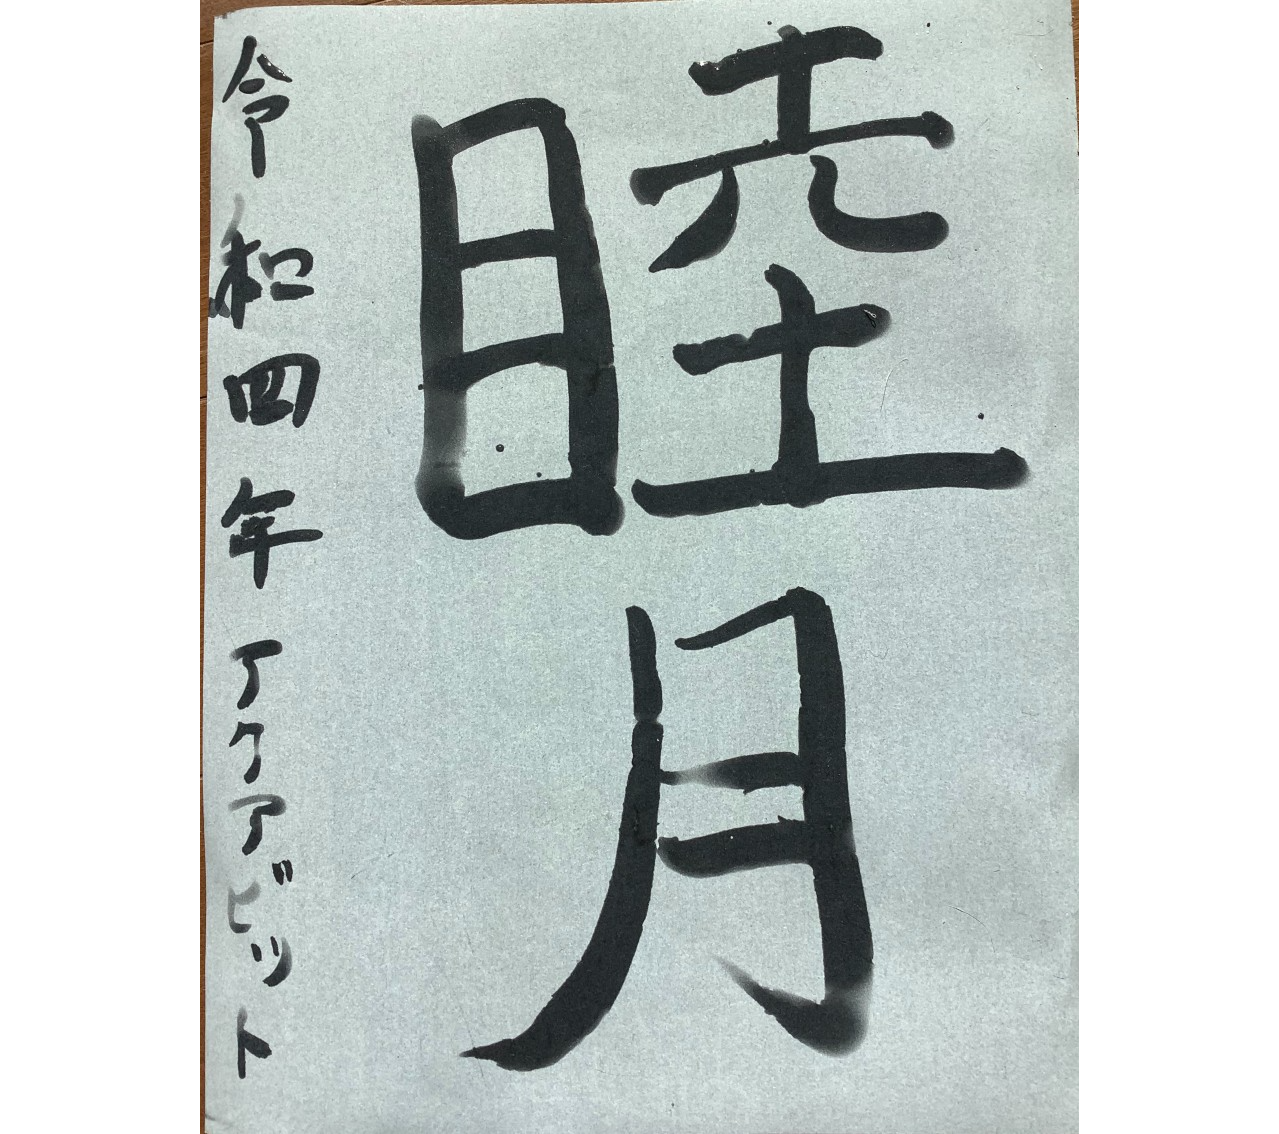 睦月
令和四年アクアビット